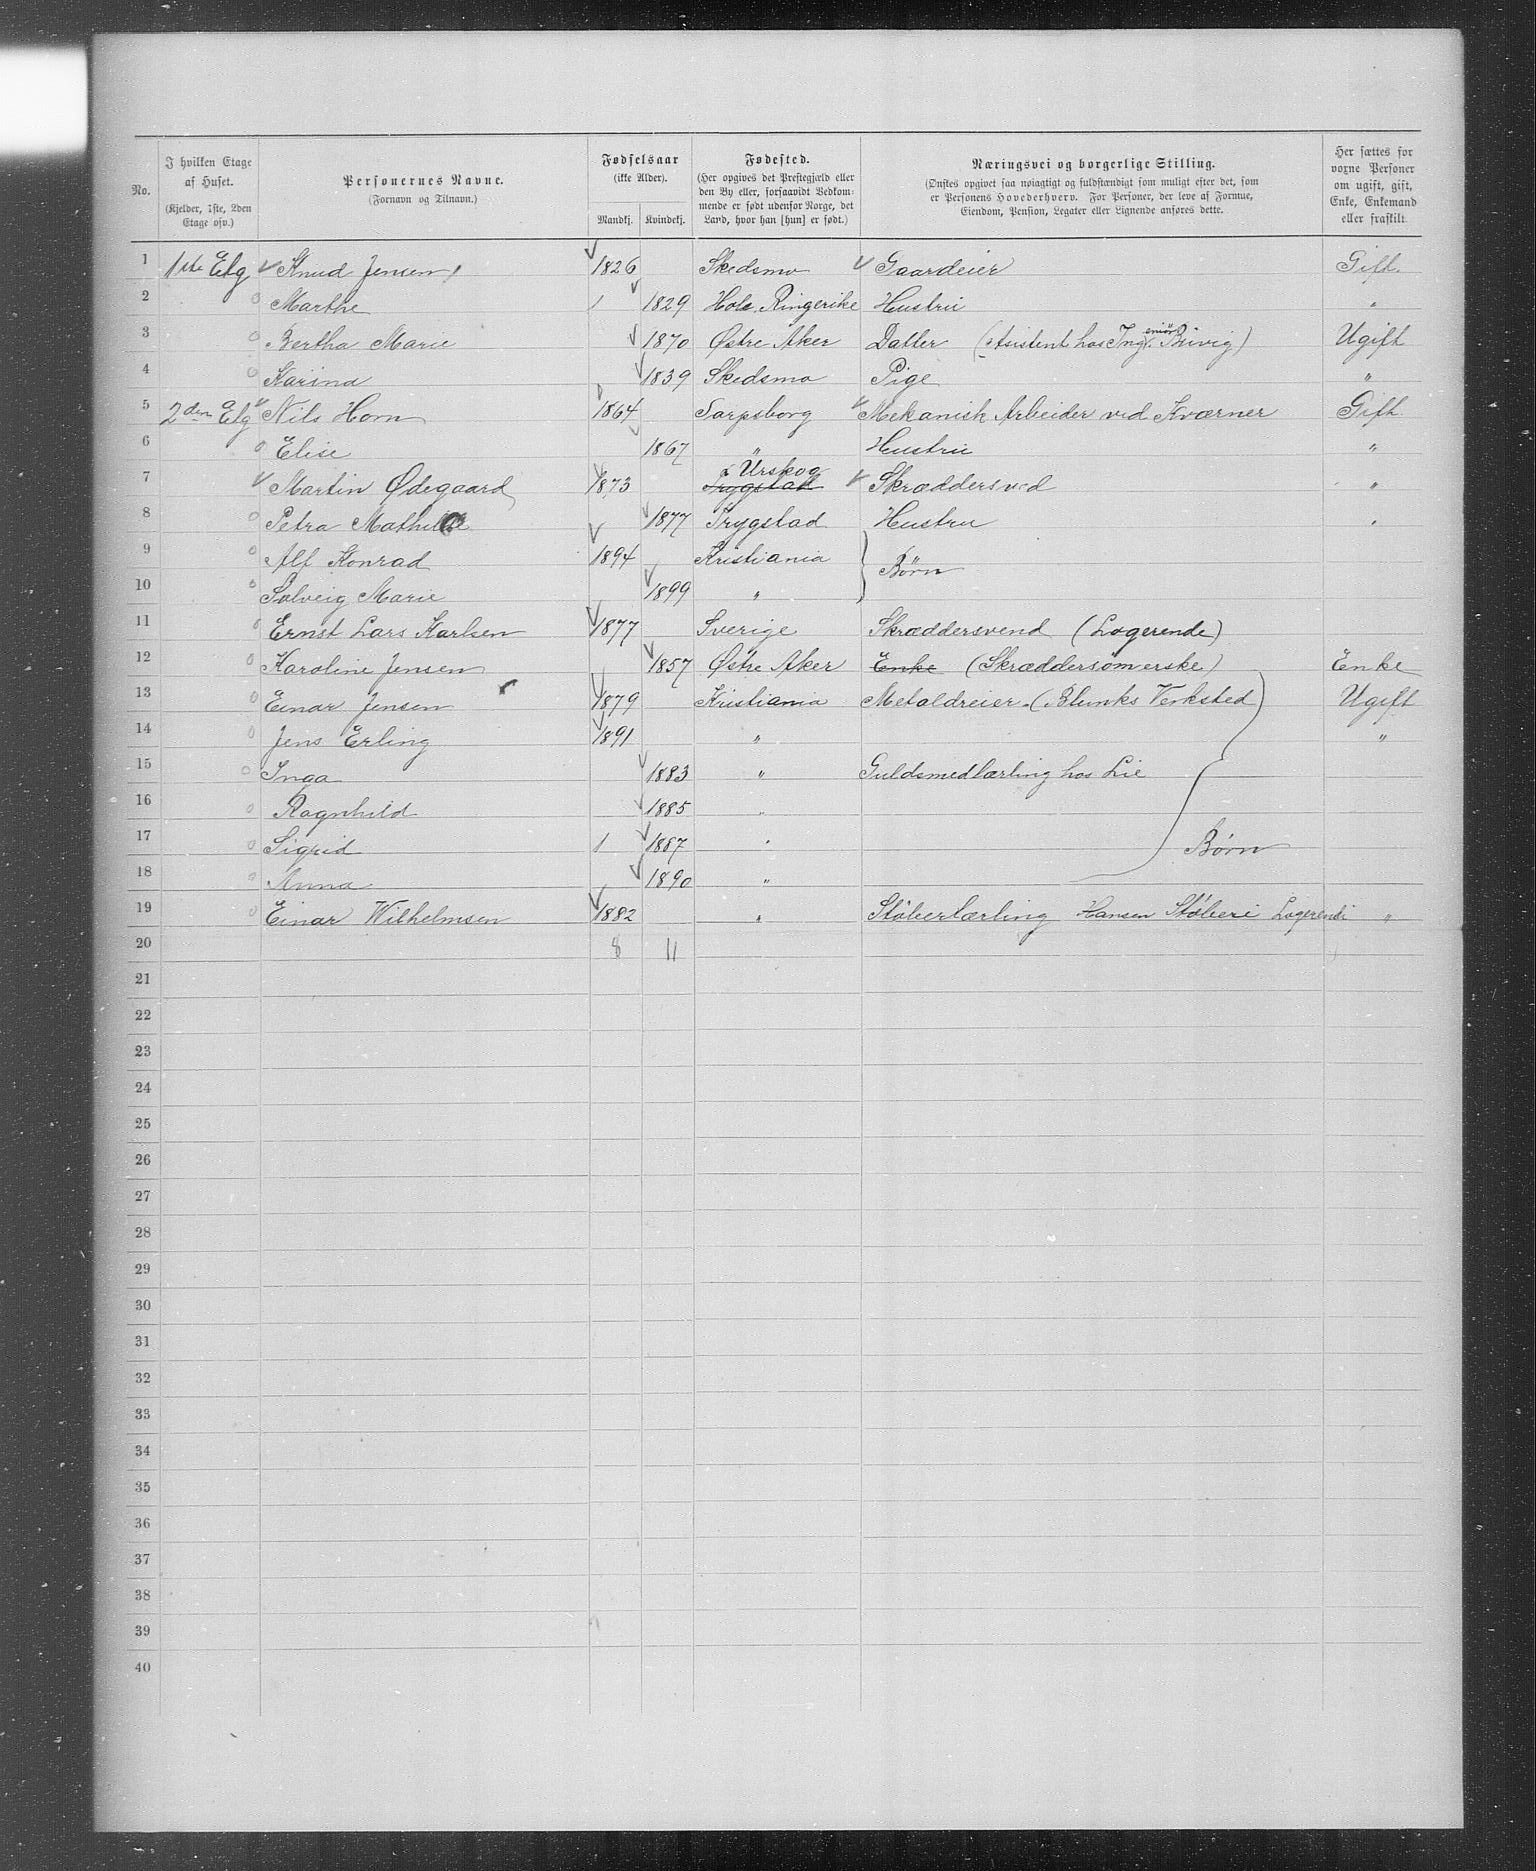 No. I hvilken Etage af Huset. (Kjelder, 1ste, 2den Etage osv.) Personernes Navne. (Fornavn og Tilnavn.) Fødselsaar (ikke Alder). Mandkj. Kvindekj. Fødested. (Her opgives det Prestegjæld eller den By eller, forsaavidt Vedkommende er født udenfor Norge, det Land, hvor han [hun] er født.) Næringsvei og borgerlige Stilling. (Ønskes opgivet saa nøiagtigt og fuldstændigt som muligt efter det, som er Personens Hovederhverv. For Personer, der leve af Formue, Eiendom, Pension, Legater eller Lignende anføres dette. Her sættes for voxne Personer om ugift, gift, Enke, Enkemand eller fraskilt.
1 1ste Etg Knud Jensen 1826 Skedsmo Gaardeier Gift.
2 Marthe 1829 Hole Ringerike Hustru "
3 Bertha Marie 1870 Østre Aker Datter (Asistent hos Ingeniør Ugift
4 Karina 1839 Skedsmo Pige "
5 2den Etg Nils Horn 1864 Sarpsborg Mekanisk Arbeider ved Kværner Gift
6 Elise 1867 " Hustru "
7 Martin Ødegaard 1873 Trygstad Urskog Skræddersved "
8 Petra Mathilde 1877 Trygstad Hustru "
9 Alf Konrad 1894 Kristiania Børn
10 Solveig Marie 1899 "
11 Ernst Lars Karlsen 1877 Sverige Skræddersvend (Logerende)
12 Karoline Jensen 1857 Østre Aker Enke (Skræddersømerske) Enke
13 Einar Jensen 1879 Kristiania Metaldreier. (Blunks Verksted Ugift
14 Jens Erling 1891 " "
15 Inga 1883 " Guldsmedlærling hos Lie
16 Ragnhild 1885 "
17 Sigrid 1887 " Børn
18 Anna 1890 "
19 Einar Wilhelmsen 1882 " Støberlærling Hansen Støberi Logerende "
20 8 11
21
22
23
24
25
26
27
28
29
30
31
32
33
34
35
36
37
38
39
40